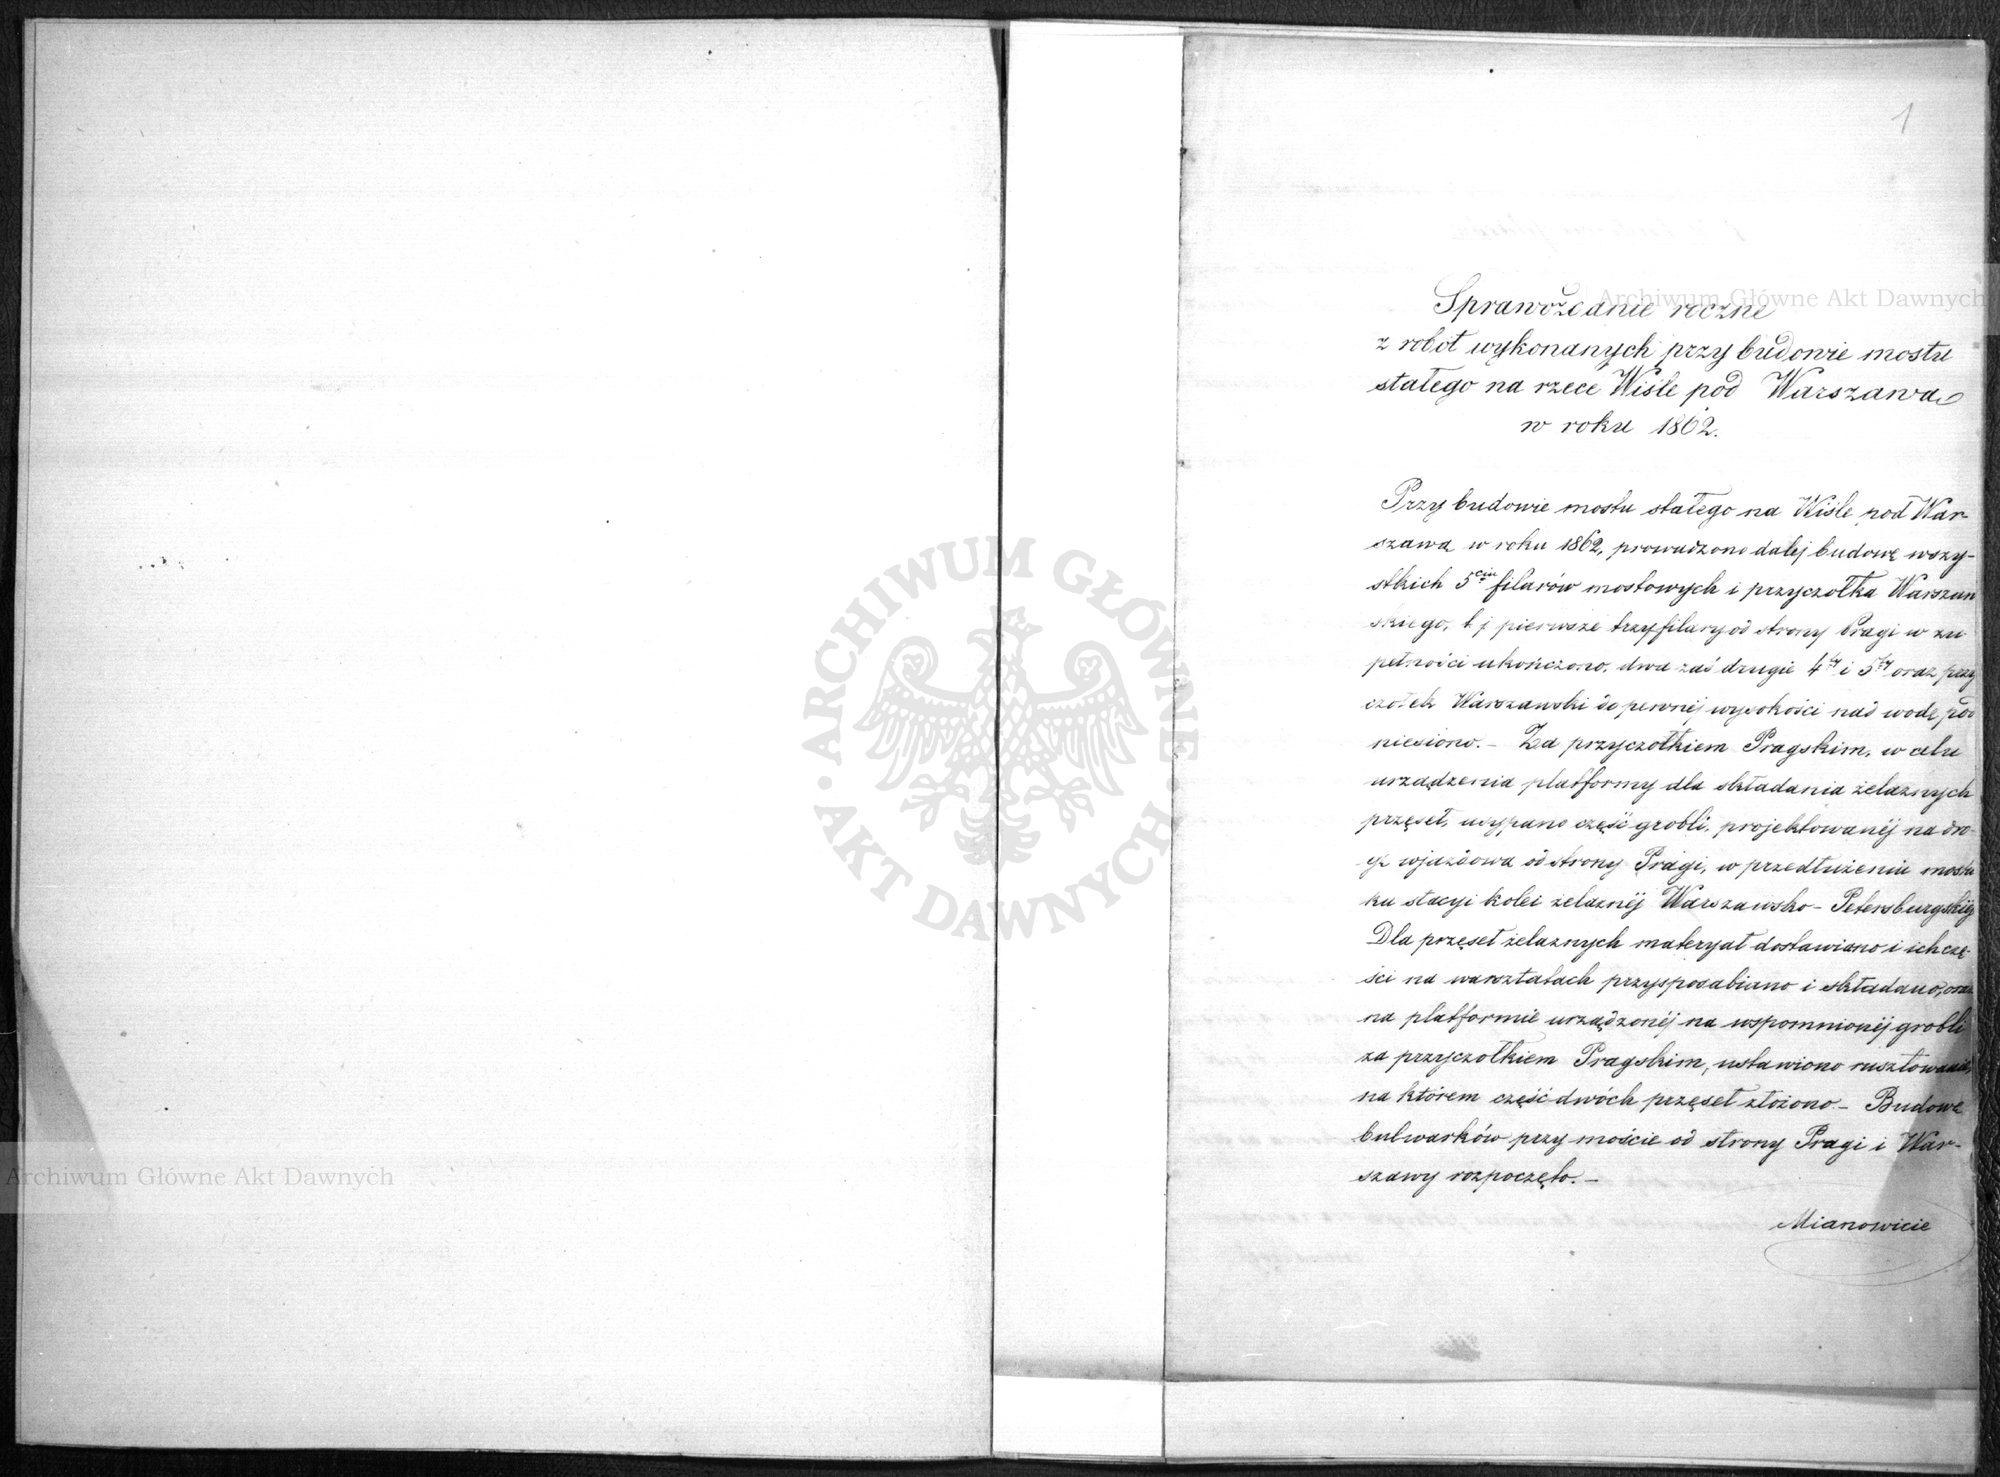 1
Sprawozdanie roczne
z robót wykonanych przy budowie mostu
stałego na rzece Wiśle pod Warszawą
w roku 1862.
Przy budowie mostu stałego na Wiśle pod War-
szawą w roku 1862, prowadzono dalej budowę wszy-
stkich 5ciu filarów mostowych i przyczółka Warszaw
skiego, t. j. pierwsze trzy filary od strony Pragi w zu
pełności ukończono, dwa zaś drugie 4ty i 5ty oraz przy
czółek Warszawski do pewnéj wysokości nad wodę pod
niesiono. – Za przyczółkiem Pragskim, w celu
urządzenia platformy dla składania żelaznych
przęseł, usypano część grobli, projektowanéj na dro-
gę wjazdową od strony Pragi, w przedłużeniu mostu
ku stacyi kolei żelaznéj Warszawsko – Petersburgskiéj
Dla przęseł żelaznych materyał dostawiano i ich czę-
ści na warsztatach przysposabiano i składano, oraz
na platformie urządzonéj na wspomnionéj grobli
za przyczółkiem Pragskim, ustawiono rusztowanie,
na którem część dwóch przęseł złożono – Budowę
bulwarków przy moście od strony Pragi i War-
szawy rozpoczęto. –
Mianowicie
ARCHIWUM GŁÓWNE AKT DAWNYCH
Archiwum Główne Akt Dawnych
Archiwum Główne Akt Dawnych